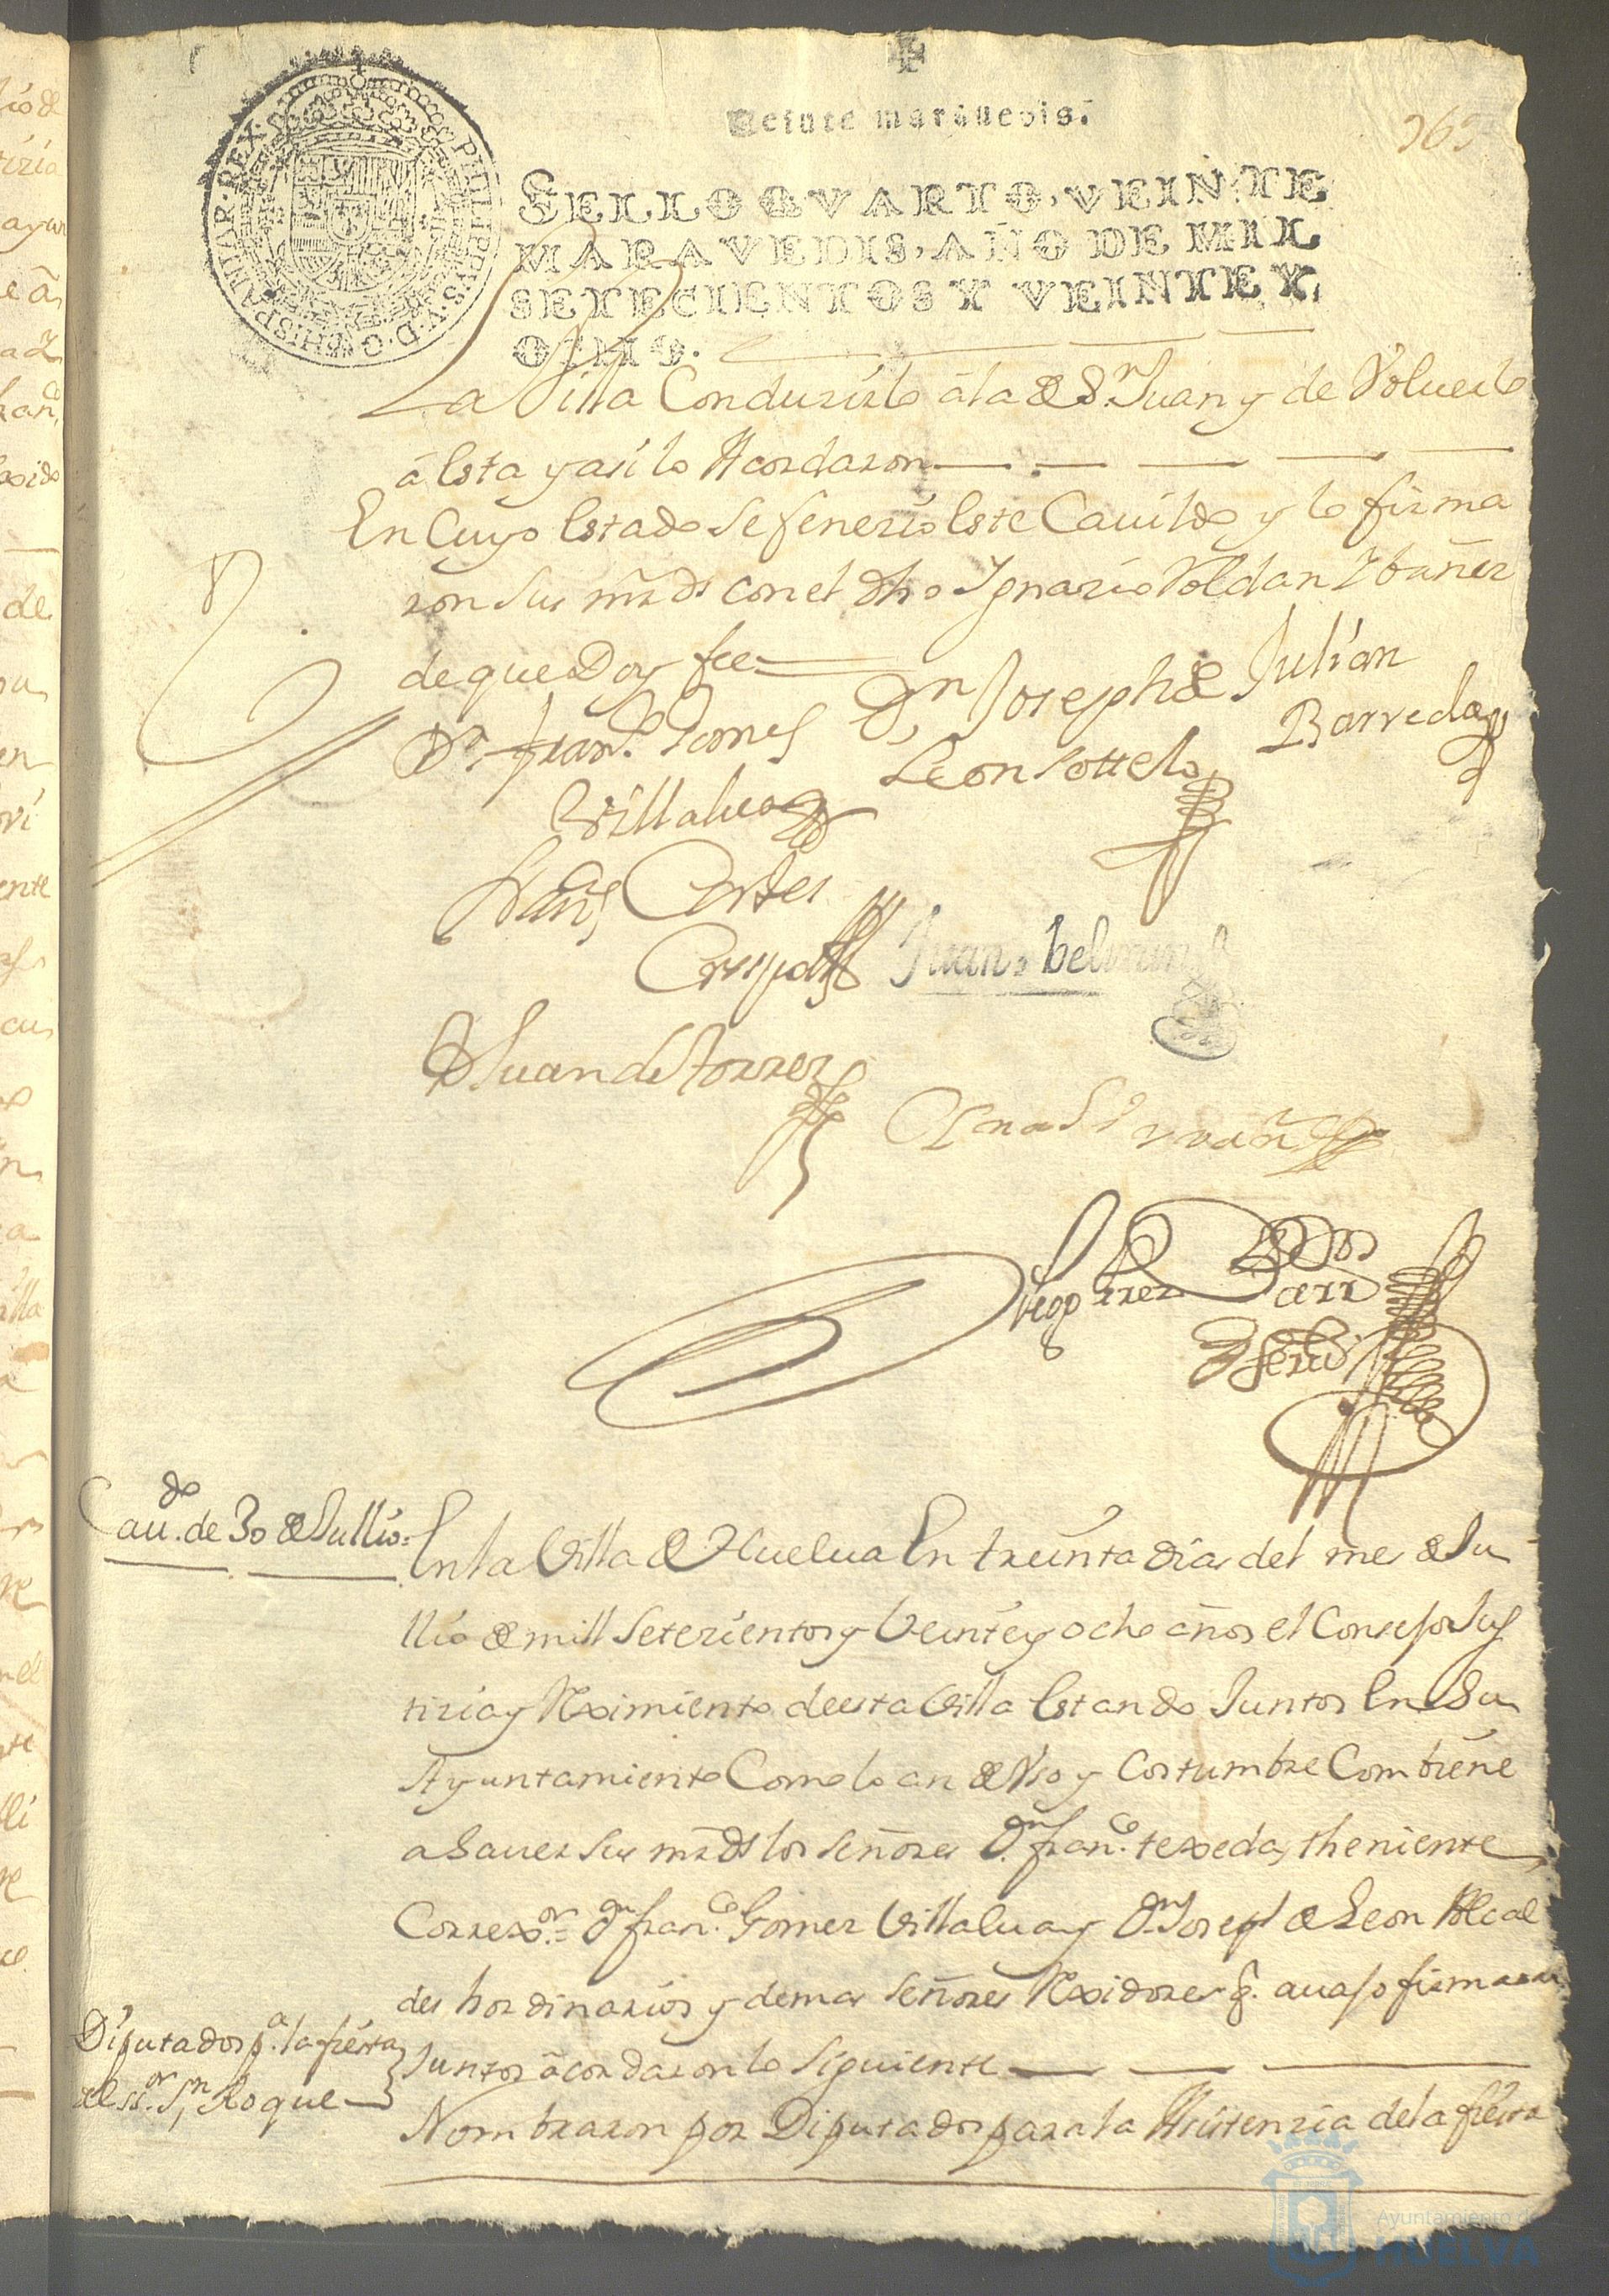 Veinte maravedis.
365
PHILIPPUS.V.D.G. HISPANIAR.REX.
SELLO QVARTO, VEINTE
MARAVEDIS, AÑO DE MIL
SETECIENTOS Y VEINTE Y
OCHO.
La Villa Conduzirlo â la de Sn. Juan y de Voluerlo
â esta y asi lo Acordaron
En Cuyo estado se fenezio este Cauildo y lo firma
ron sus mrds con el dho Ignazio Roldan Ybañez
de que Doy fee
Dn. Joseph de
Leon Sottelo
Julian
Barreda
Dn. Franco. Gomes
Villalua
Cortes
Crespo
Juan belmn
D Juan de Torres
Caudo. de 30 de Jullio
En la Villa de Huelua En treinta dias del mes de Ju
llio de mill setezientos y Veinte y ocho años el Consejo Jus
tizia y Reximiento de esta Villa estando Juntos En Su
Ayuntamiento Como lo an de Vso y Costumbre Combiene
a Sauer sus mrds los señores Dn. franco. texeda theniente
Correxor. Dn franco. Gomez Villalua y Dn. Joseph de Leon Alcal
des hordinarios y demas señores Rexidores q. auajo firmaran
Juntos âcordaron lo siguiente
Diputados pa. la fiesta
del ssor. Sn. Roque
Nombraron por Diputados para la Assistenzia de la fiesta
Ayuntamiento de
HUELVA